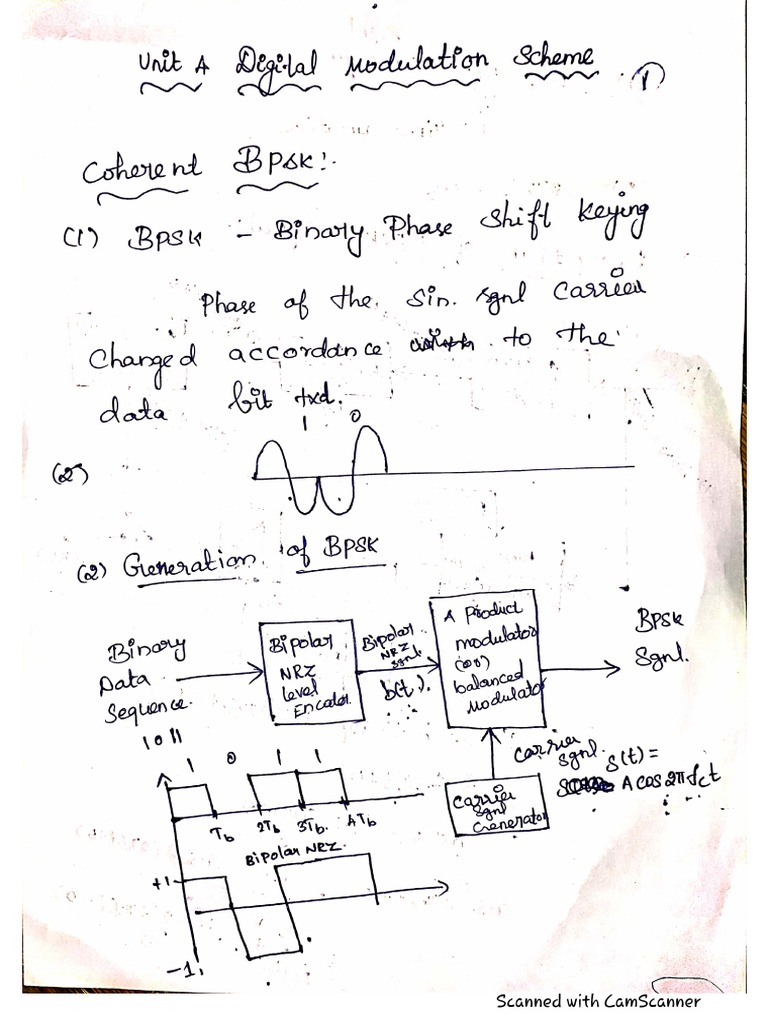 Unit 4 Digital Modulation Scheme
1
Coherent BPSK:-
(1) BPSK - Binary Phase Shift Keying
Phase of the Sin. sgnl carrier
Changed accordance to the
data bit txd.
1 0
(2)
(2) Generation of BPSK
Binary
Data
Sequence.
1011
Bipolar
NRZ
level
Encoder.
Bipolar
NRZ
sgnl
b(t).
A Product
modulator
(or)
balanced
Modulator
BPSK
Sgnl.
Carrier
Sgnl.
S(t) =
A cos 2π fc t
Carrier
Sgnl
Generator
1 0 1 1
Tb 2Tb 3Tb. 4Tb
Bipolar NRZ.
+1
-1
Scanned with CamScanner